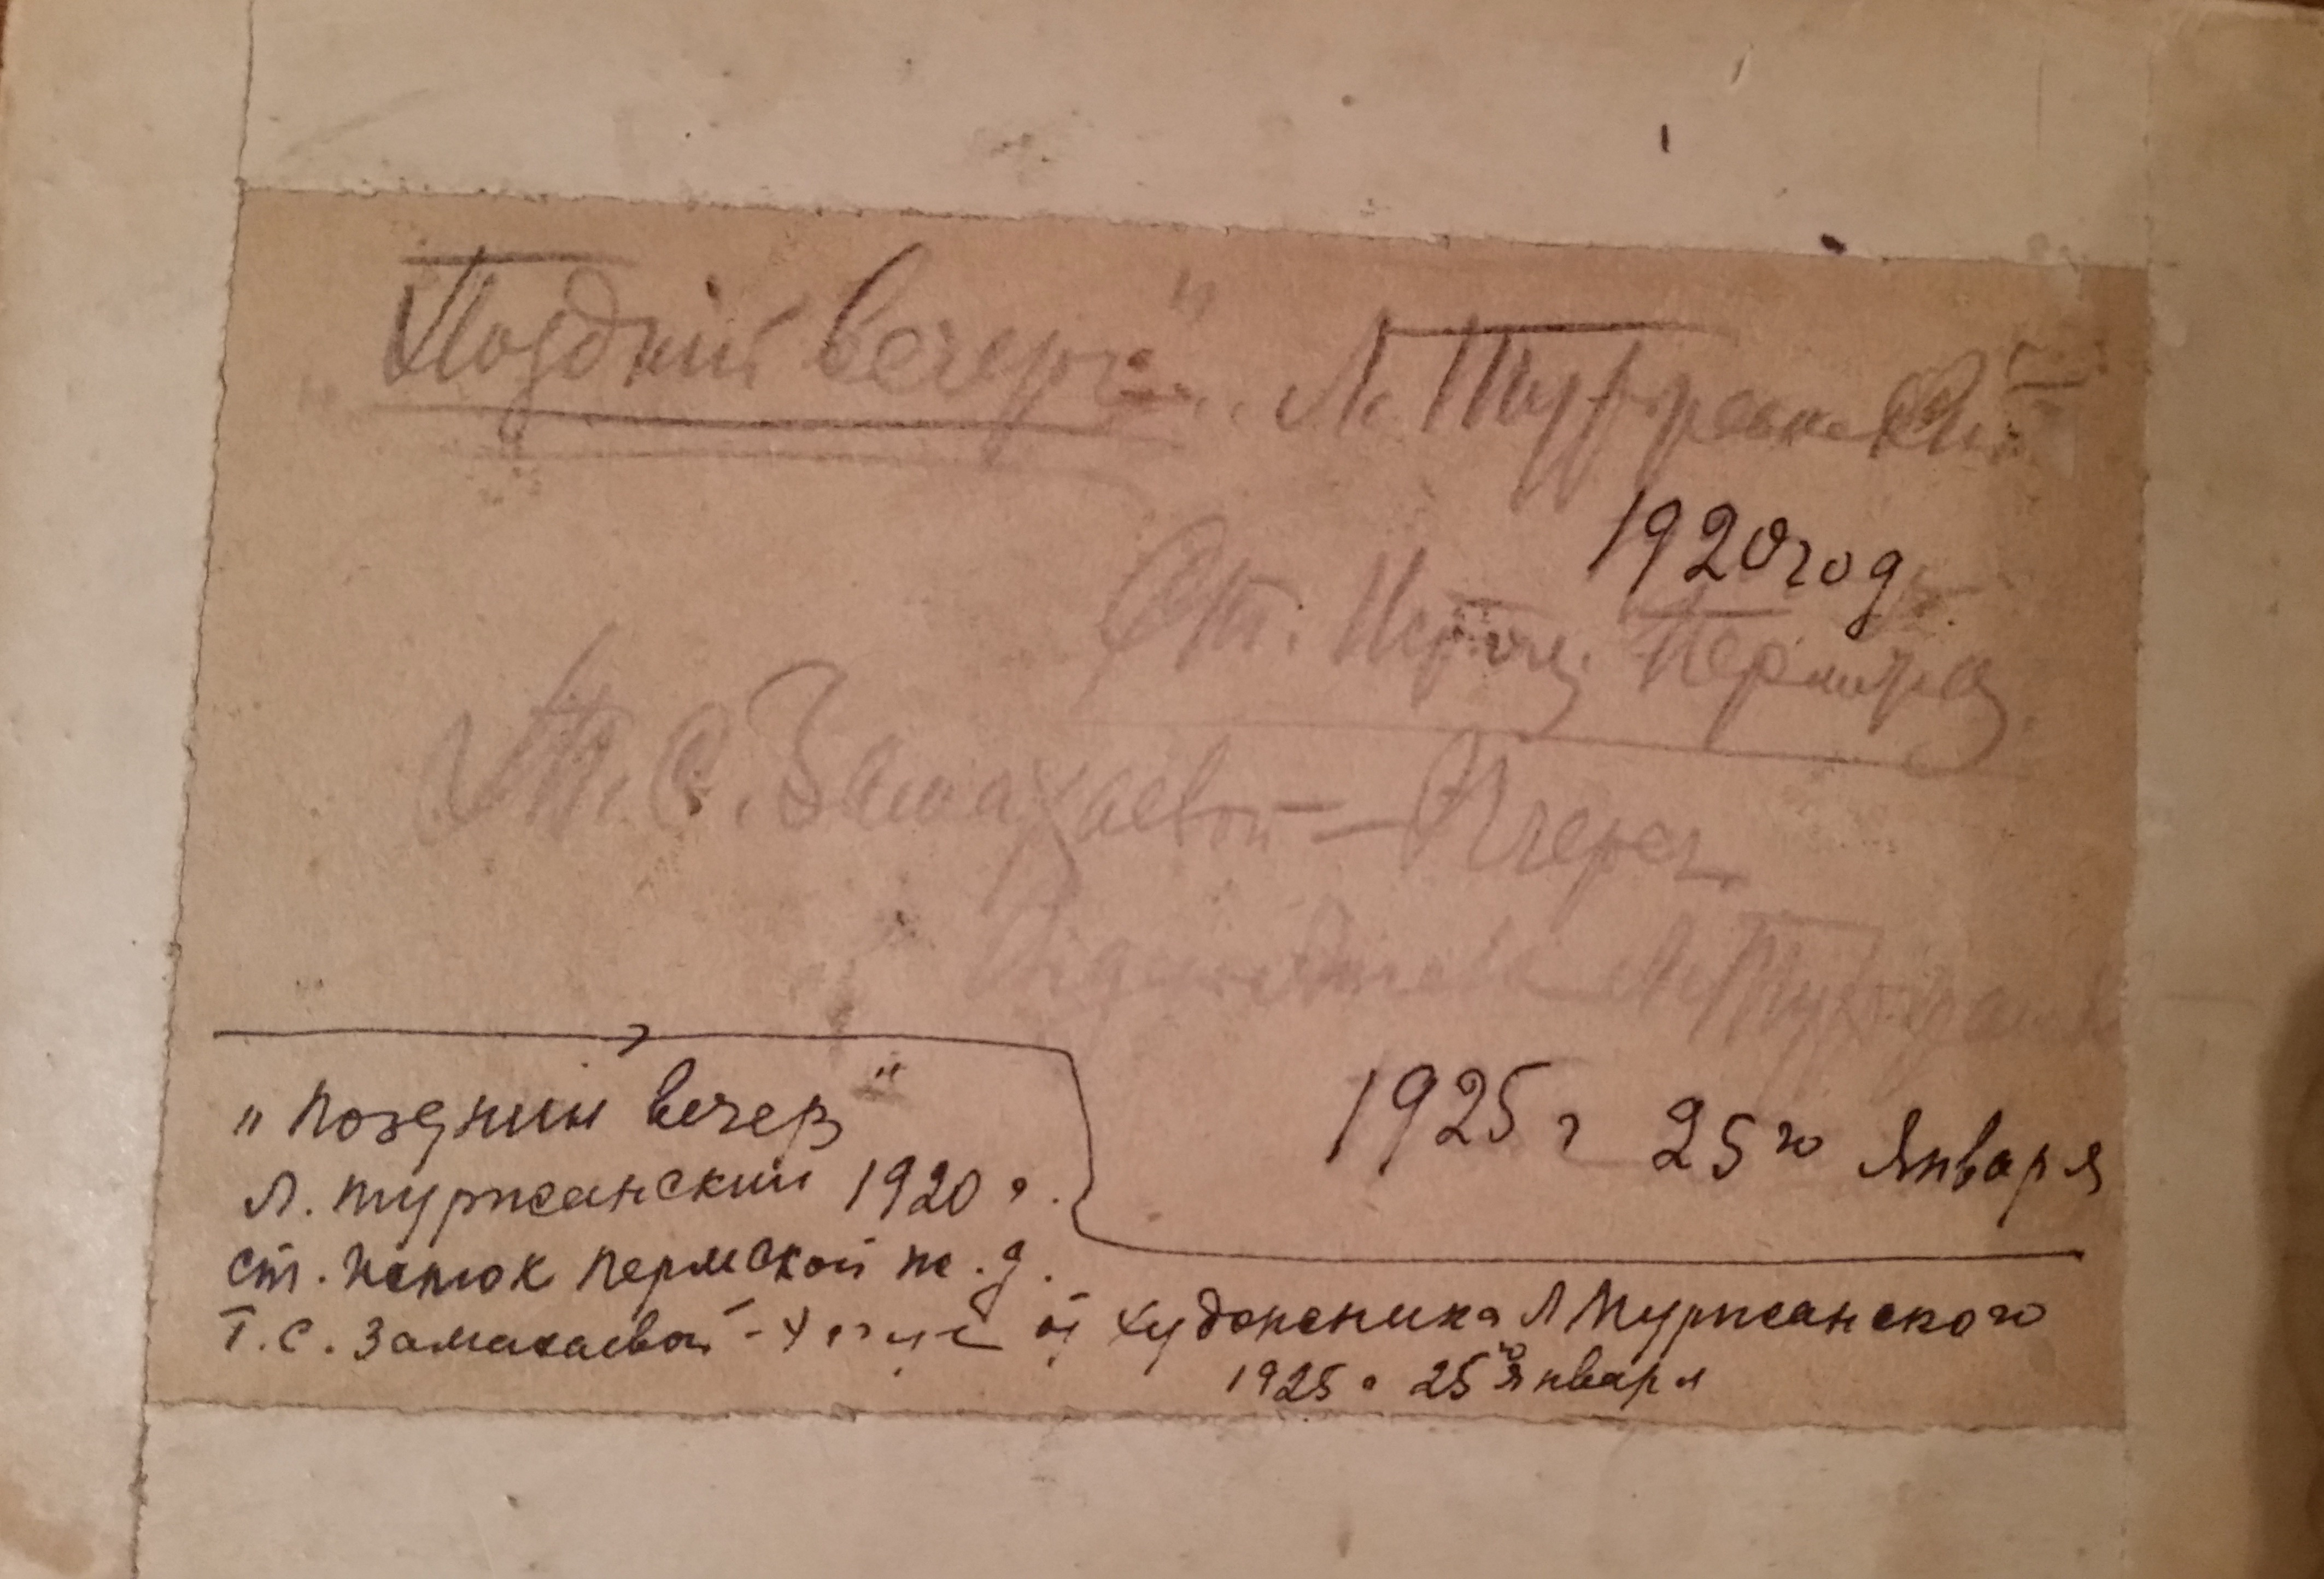 „Поздний вечеръ" Л. Туржанский
1920 год
Ст.
Т. С. Замахаевой —
Л. Туржанск
1925 г 25го Января
„Поздний вечер"
Л. Туржанский 1920 г.
ст. Исток Пермской ж. д.
Т. С. Замахаевой - от художника Л Туржанского
1925 г 25го Января